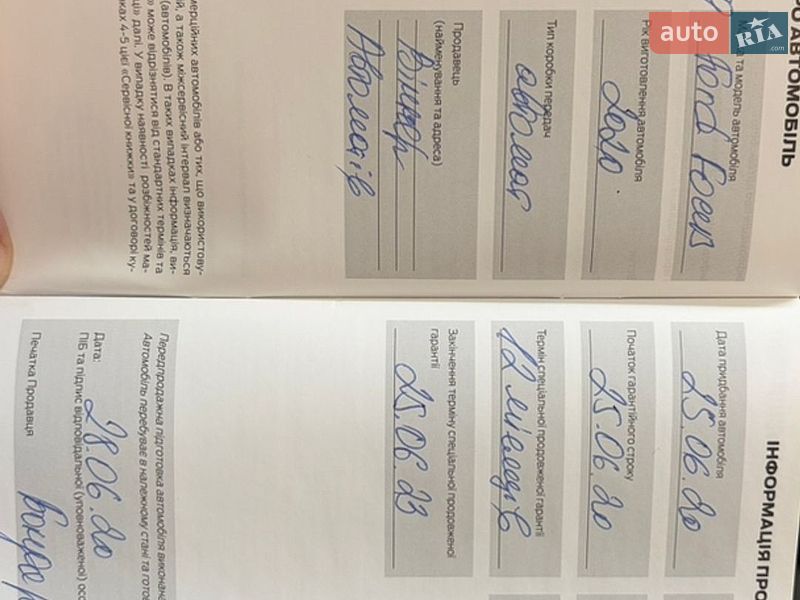 auto RIA
.com
РО АВТОМОБІЛЬ
та модель автомобіля
Ford Focus
Рік виготовлення автомобіля
2020
Тип коробки передач
автомат
Продавець
(найменування та адреса)
Вінер
Автомотів
мерційних автомобілів або тих, що використову-
й, а також міжсервісний інтервал визначаються
(автомобілів). В таких випадках інформація, ви-
» може відрізнятися від стандартних термінів та
ці» далі. У випадку наявності розбіжностей ма-
ках 4-5 цієї «Сервісної книжки» та у договорі ку-
ІНФОРМАЦІЯ ПРО
Дата придбання автомобіля
25.06.20
Початок гарантійного строку
25.06.20
Термін спеціальної продовженої гарантії
12 місяців
Закінчення терміну спеціальної продовженої
гарантії
25.06.23
Передпродажна підготовка автомобіля викона
Автомобіль перебуває в належному стані та гото
Дата:
28.06.20
ПІБ та підпис відповідальної (уповноваженої) осо
Печатка Продавця